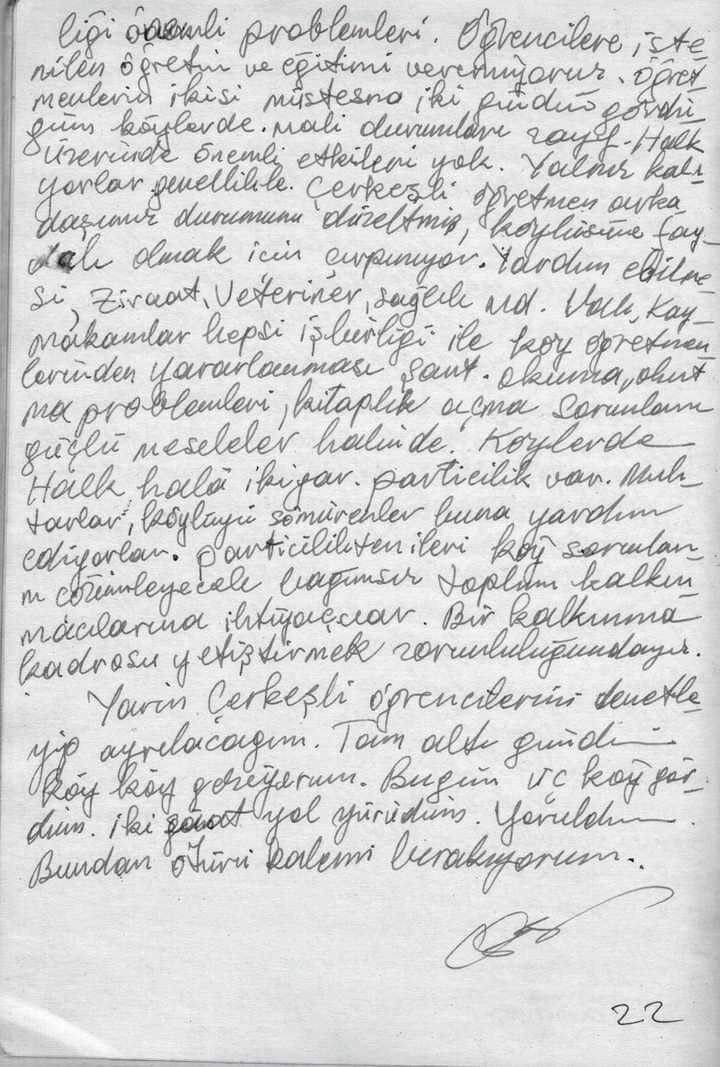 liği önemli problemleri. Öğrencilere iste-
nilen öğretim ve eğitimi veremiyoruz. Öğret-
menlerin ikisi müstesna iki gündür gördü-
ğüm köylerde. Mali durumları zayıf. Halk
üzerinde önemli etkileri yok. Yalnız kalı-
yorlar genellikle. Çerkeşli öğretmen arka-
daşımız durumunu düzeltmiş, köylüsüne fay-
dalı olmak için çırpınıyor. Yardım edilme-
si, Ziraat, Veteriner, sağlık Md. Vali, Kay-
makamlar hepsi işbirliği ile köy öğretmen-
lerinden yararlanması şart. Okuma, okut-
ma problemleri, kitaplık açma sorunları
güçlü meseleler halinde. Köylerde
Halk hala iki gar. particilik var. Muh-
tarlar, köylüyü sömürenler buna yardım
ediyorlar. particilikten ileri köy sorunları-
nı çözümleyecek bağımsız toplum kalkın-
macılarına ihtiyaç var. Bir kalkınma
kadrosu yetiştirmek zorunluluğundayız.
Yarın Çerkeşli öğrencilerini denetle-
yip ayrılacağım. Tam altı gündür
köy köy geziyorum. Bugün üç köy gör-
düm. iki saat yol yürüdüm. Yoruldum.
Bundan ötürü kalemi bırakıyorum.
22